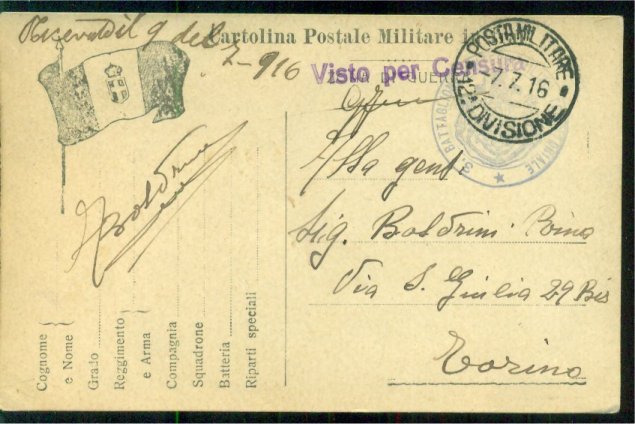 Ricevuta il 9 del
7-916
Cartolina Postale Militare in
ZONA DI GUERRA
Visto per Censura
POSTA MILITARE
-7.7.16
22ª DIVISIONE
BATTAGLIO
Alla gent.
Sig. Boldrini
Via S. Giulia 29 Bis
Torino
Boldrini
Cognome
e Nome
Grado
Reggimento
e Arma
Compagnia
Squadrone
Batteria
Riparti speciali